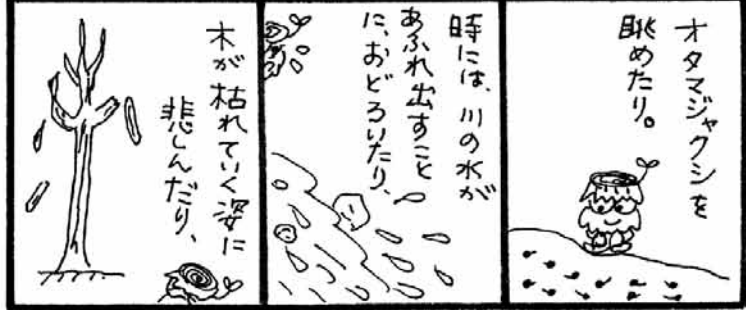 オタマジャクシを
眺めたり。
時には、川の水が
あふれ出すこと
に、おどろいたり、
木が枯れていく姿に
悲しんだり、